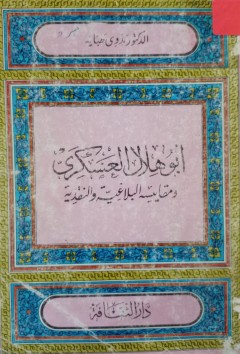 الدكتور بدوى طبانة
أبو هلال العسكرى
ومقاييسه البلاغية والنقدية
دار الثقافة